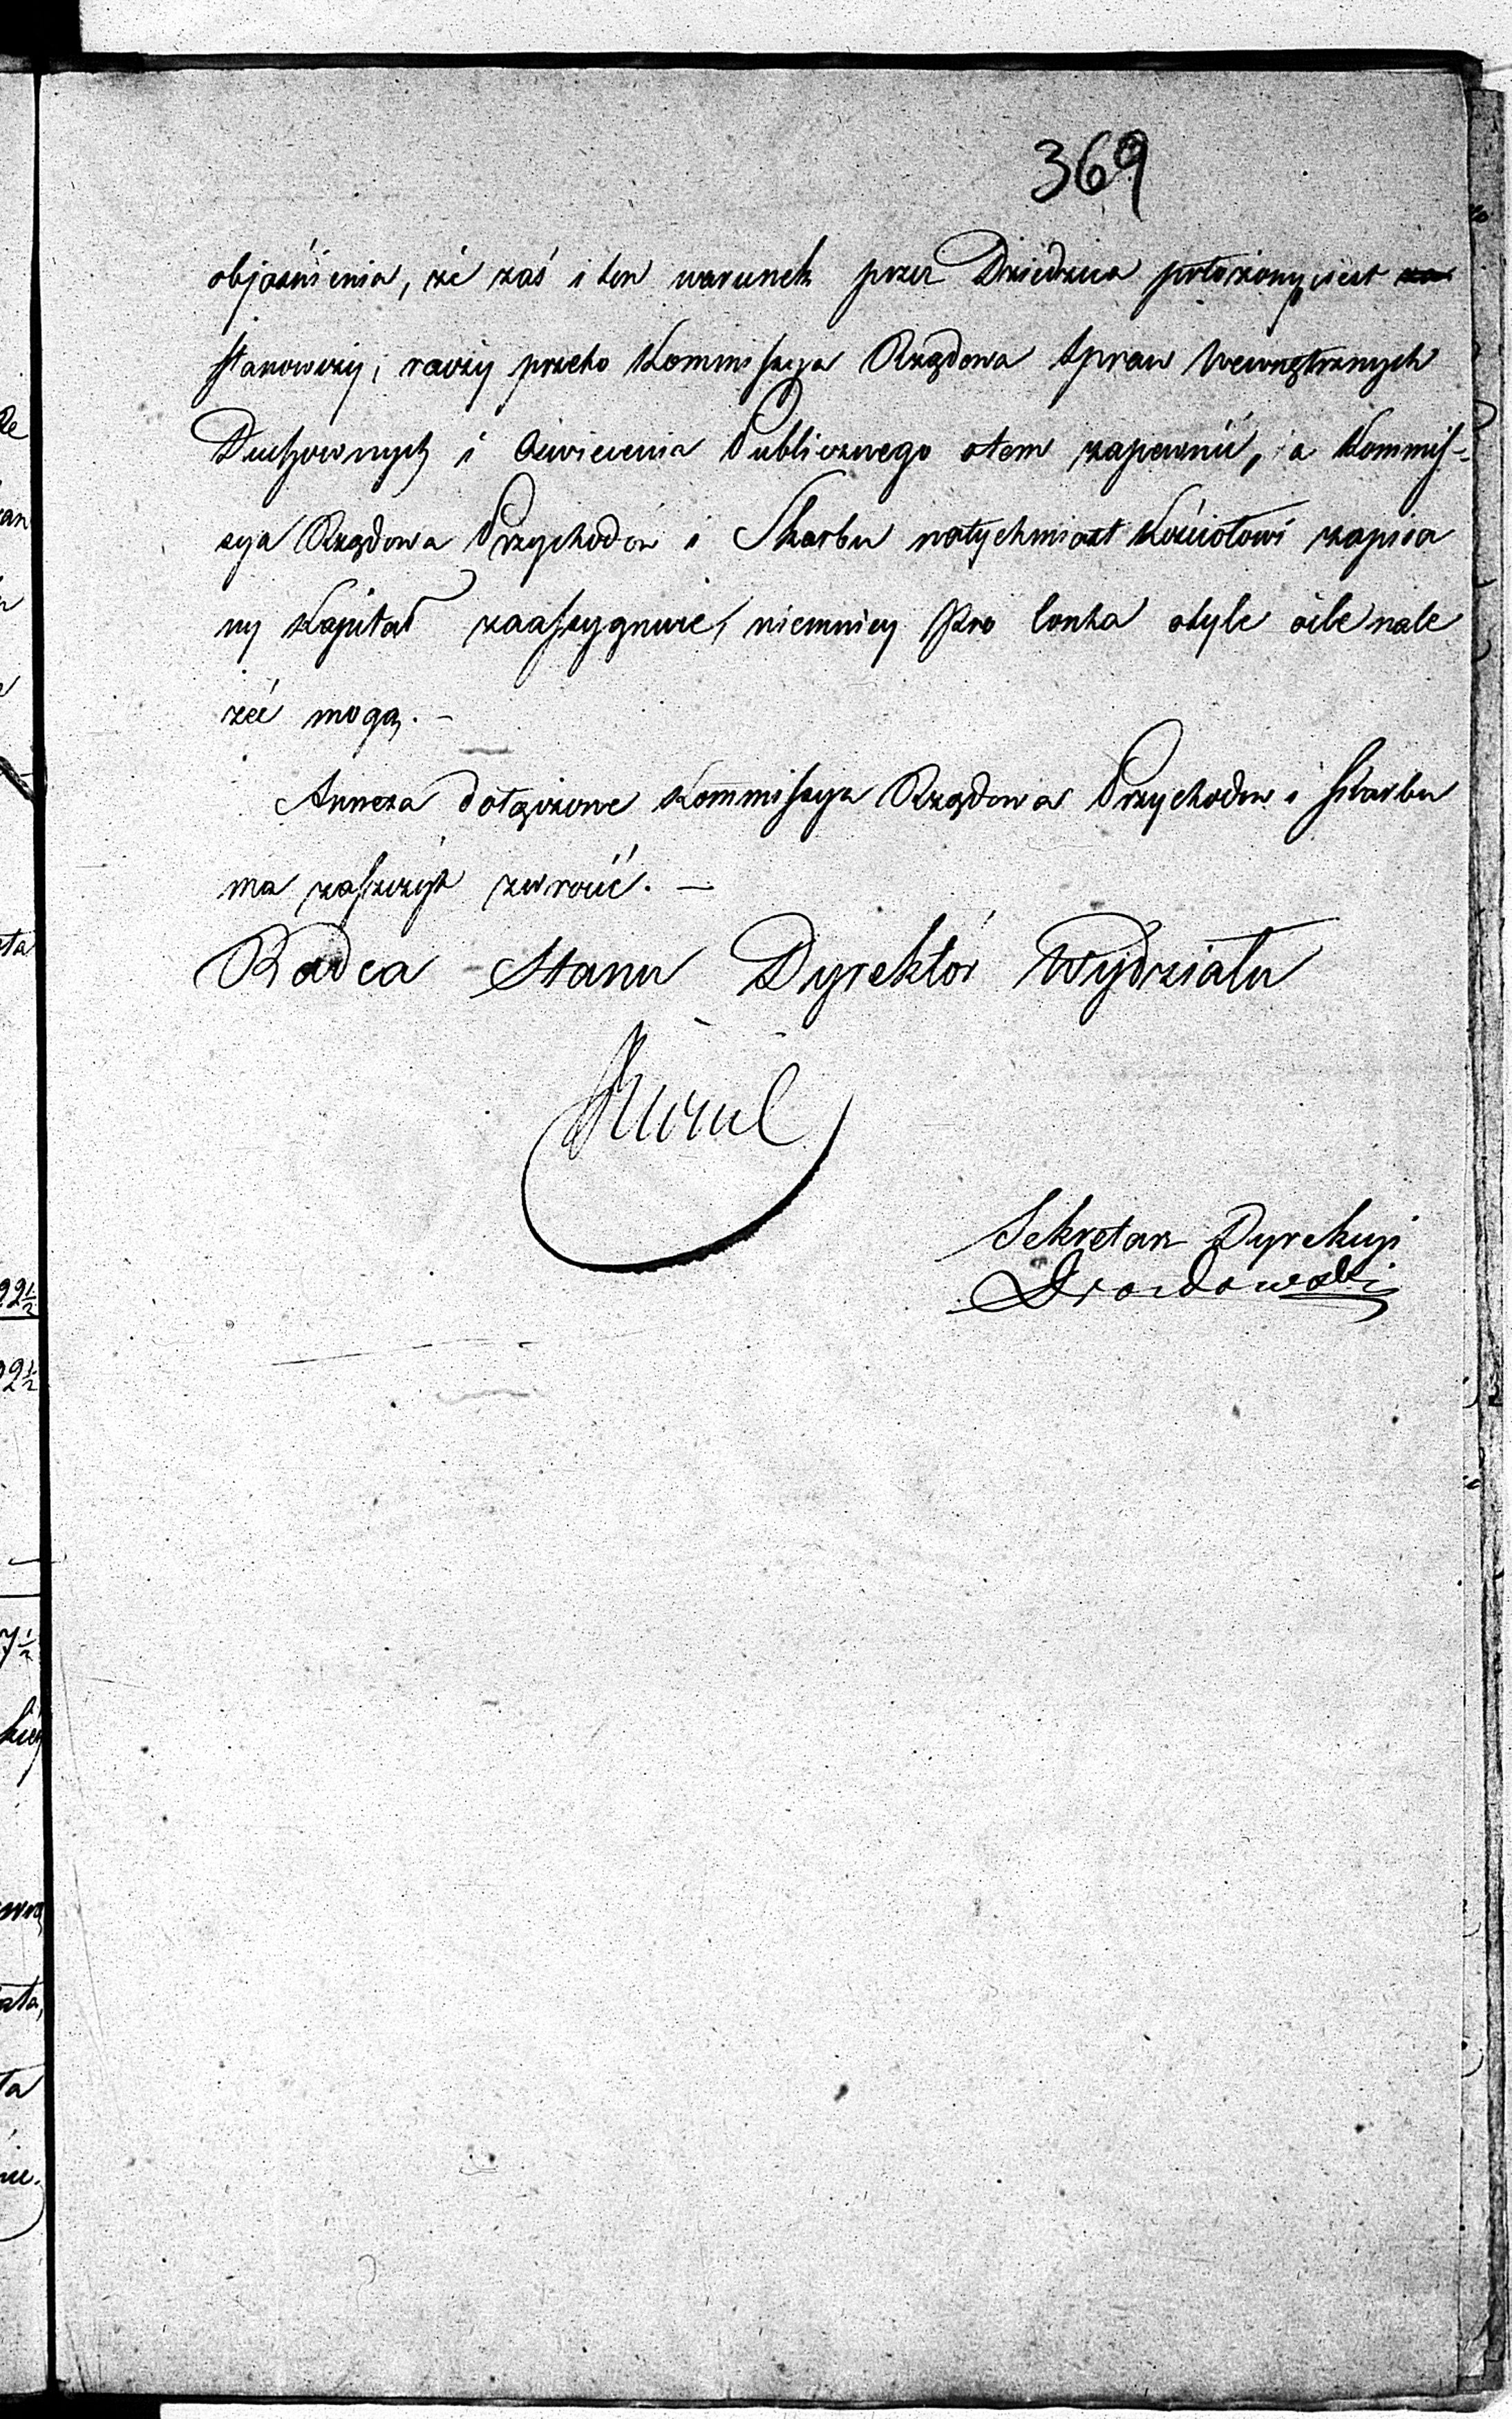 369
objaśnienia, że zaś i ten warunek przez Dziedzica położony jest
stanowczy; raczy przeto Kommissya Rządowa Spraw Wewnętrznych
Duchownych i Oświecenia Publicznego otem zapewnić, a Kommis-
sya Rządowa Przychodów i Skarbu natychmiast Kościołowi zapisa
ny Kapitał zaassygnuie, niemniey Pro
otyle oile nale
żeć mogą. -
Annexa dołączone Kommissya Rządowa Przychodów i Skarbu
ma zaszczyt zwrócić. -
Radca Stanu Dyrektor Wydziału
Sekretarz Dyrekcyi
Drozdowski